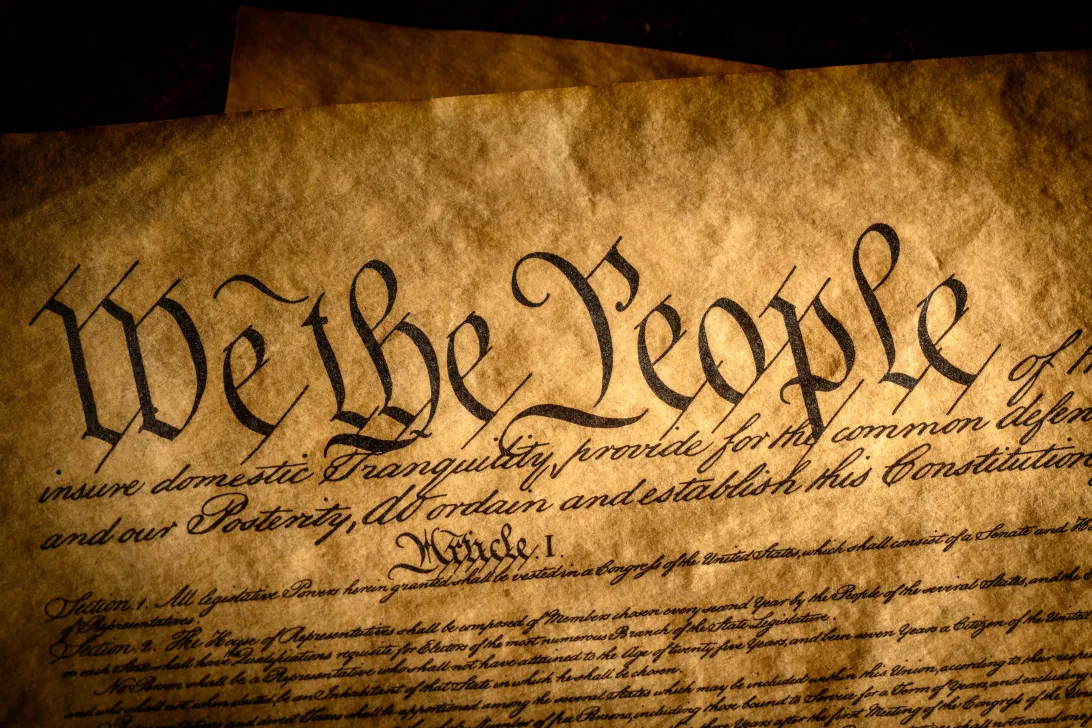 We the People of
insure domestic Tranquility, provide for the common defen
and our Posterity, do ordain and establish this Constitution
Article. I.
Section. 1. All legislative Powers herein granted shall be vested in a Congress of the United States, which shall consist of a Senate and
of Representatives.
Section. 2. The House of Representatives shall be composed of Members chosen every second Year by the People of the several States, and the
in each State shall have the Qualifications requisite for Electors of the most numerous Branch of the State Legislature.
No Person shall be a Representative who shall not have attained to the Age of twenty five Years, and been seven Years a Citizen of the United
and who shall not, when elected, be an Inhabitant of that State in which he shall be chosen.
Representatives and direct Taxes shall be apportioned among the several States which may be included within this Union, according to their
Number of free Persons, including those bound to Service for a Term of Years, and excluding
Years after the first Meeting of the Congress of the